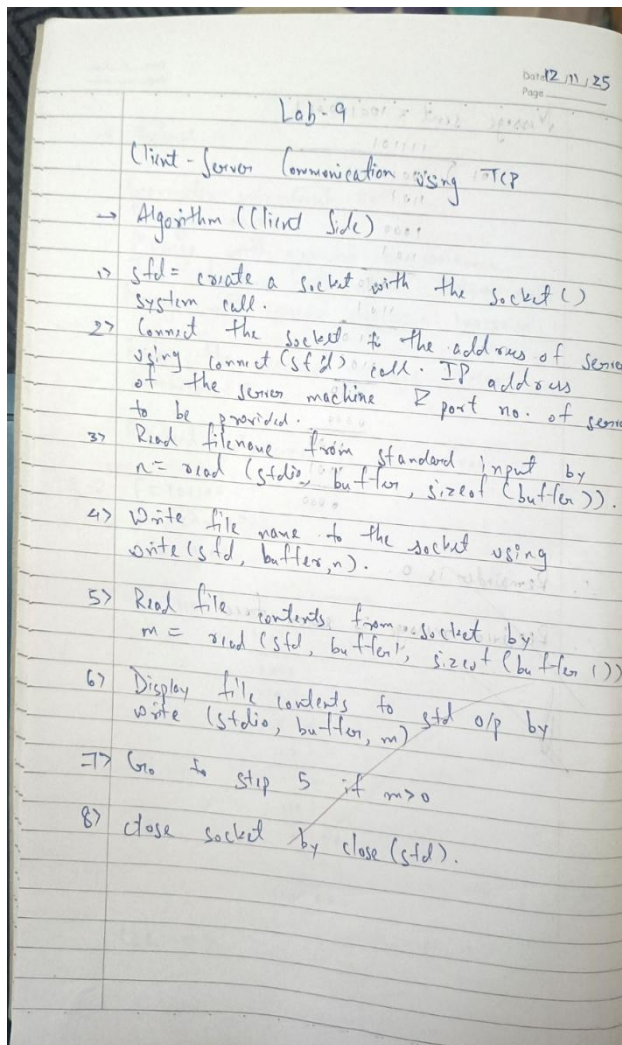 Date 12/11/25
Page
Lab-9
Client-Server Communication using TCP
→ Algorithm (Client Side)
1> sfd = create a socket with the socket()
system call.
2> Connect the socket to the address of
using connect(sfd) call. IP address
of the server machine & port no. of
to be provided.
3> Read filename from standard input by
n = read (stdio, buffer, sizeof (buffer)).
4> Write file name to the socket using
write(sfd, buffer, n).
5> Read file contents from socket by
m = read (sfd, buffer1, sizeof (buffer1))
6> Display file contents to std o/p by
write (stdio, buffer, m)
7> Go to step 5 if m>0
8> close socket by close (sfd).